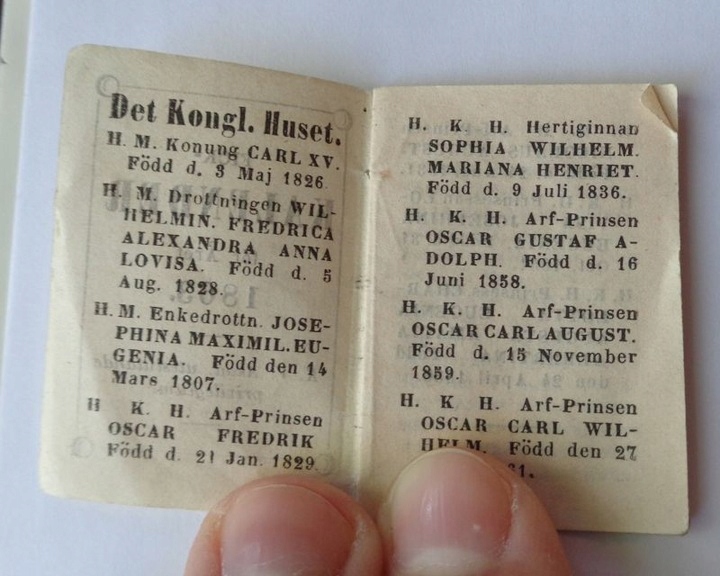 Det Kongl. Huset.
H. M. Konung CARL XV.
Född d. 3 Maj 1826
H. M. Drottningen WIL-
HELMIN. FREDRICA
ALEXANDRA ANNA
LOVISA. Född d. 5
Aug. 1828.
H. M. Enkedrottn. JOSE-
PHINA MAXIMIL. EU-
GENIA. Född den 14
Mars 1807.
H K. H. Arf-Prinsen
OSCAR FREDRIK
Född d. 21 Jan. 1829
H. K. H. Hertiginnan
SOPHIA WILHELM.
MARIANA HENRIET.
Född d. 9 Juli 1836.
H. K. H. Arf-Prinsen
OSCAR GUSTAF A-
DOLPH. Född d. 16
Juni 1858.
H. K. H. Arf-Prinsen
OSCAR CARL AUGUST.
Född d. 15 November
1859.
H. K. H. Arf-Prinsen
OSCAR CARL WIL-
HELM. Född den 27